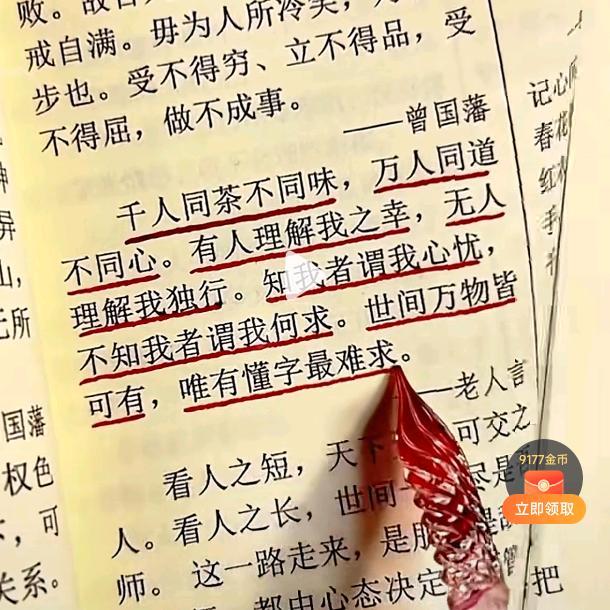 败。
戒自满。毋为人所冷笑,
步也。受不得穷、立不得品,受
不得屈,做不成事。
——曾国藩
千人同茶不同味,万人同道
不同心。有人理解我之幸,无人
理解我独行。知我者谓我心忧,
不知我者谓我何求。世间万物皆
可有,唯有懂字最难求。
——老人言
看人之短,天下 可交之
人。看人之长,世间 尽是
师。这一路走来,是
都由心态决定
把
记心
春花
红
手
屏
山,
无所
国藩
权色
,可
关系。
9177金币
立即领取